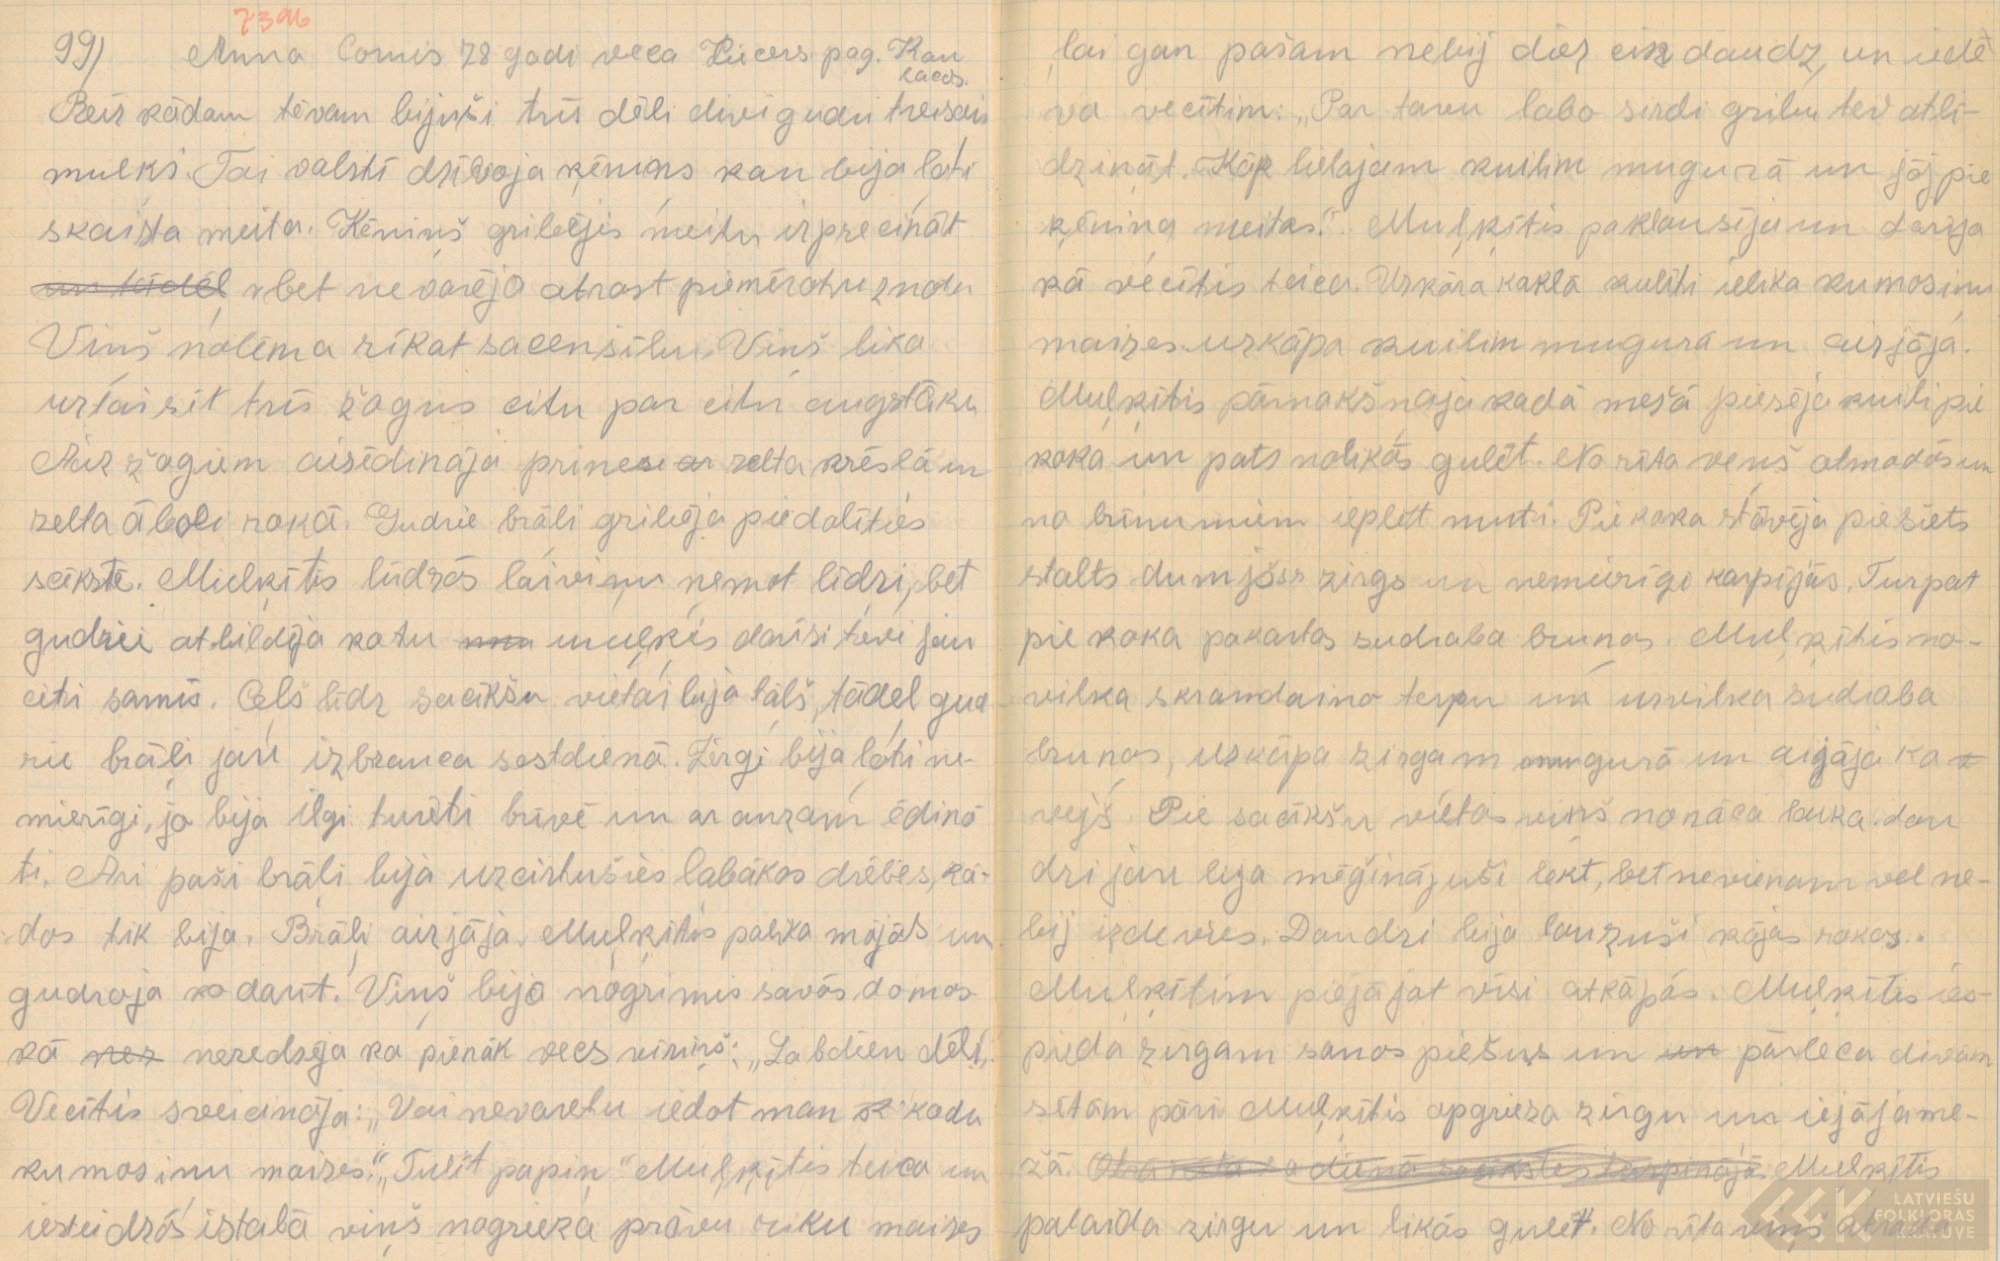 7396
99) Anna Comis 78 gadi veca Kiecers pag. Kan
cacos.
Reiz kādam tēvam bijuši trīs dēli divi gudri trešais
muļķis. Tai valstī dzīvoja ķēniņš kam bija ļoti
skaista meita. Ķēniņš gribējis meitu izprecināt
un tādēļ bet nevarēja atrast piemērotu znotu
Viņš nolēma rīkat sacensību. Viņš lika
uztaisīt trīs žogus citu par citu augstāku
Aiz žogiem aisēdināja prinesi ar zelta krēslā un
zelta āboli rokā. Gudrie brāļi gribēja piedalīties
scīkstē. Muļķītis lūdzās lai viņu ņemot līdzi, bet
gudrie atbildēja ko tu muļķis darīsi tevi jau
citi samīs. Ceļš līdz sacīkšu vietai bija tāļš, tādēļ gud
rie brāļi jau izbrauca sestdienā. Zirgi bija ļoti ne-
mierīgi, jo bija ilgi turēti brīvē un ar auzām ēdinā
ti. Ari paši brāļi bija uzcirtušies labākās drēbēs, kā-
dos tik bija. Brāļi aizjāja. Muļķītis palika mājās un
gudroja ko darīt. Viņš bija nogrimis savās domās
kā nez neredzēja ka pienāk vecs vīriņš: „Labdien dēls,
Vecītis sveicināja: „Vai nevaretu iedot man kādu
kumosiņu maizes.“ „Tulīt papiņ“ Muļķītis teica un
iesteidzās istabā viņš nogrieza prāvu riku maizes
lai gan pašam nebij diez cik daudz, un iedē
va vecītim: „Par tavu labo sirdi gribu tev atlī-
dzināt. Kāp lielajam kuilim mugurā un jāj pie
ķēniņa meitas.“ Muļķītis paklausīja un darīja
kā vecītis teica. Uzkāra kaklā kulīti ielika kumosiņu
maizes uzkāpa kuilim mugurā un aizjāja.
Muļķītis pārnakšņoja kadā mežā piesēja kuili pie
koka un pats nolikās gulēt. No rīta viņš atmodās un
no brīnumiem ieplēt muti. Pie koka stāvēja piesiets
stalts dumjšs zirgs un nemierīgi karpījās. Turpat
pie koka pakartas sudraba bruņas. Muļķītis no-
vilka skrandaino terpu un uzvilka sudraba
bruņas, uzkāpa zirgam mugurā un aizjāja ka
vejš. Pie sacīkšu vietas viņš nonāca laika. dau
dzi jau bija mēģinājuši lēkt, bet nevienam vel ne-
bij izdevies. Daudzi bija lauzuši kājas rokas.
Muļķītim piejājot visi atkāpās. Muļķītis ies-
pieda zirgam sānos piešus un un pārlēca divām
sētām pāri Muļķītis apgrieza zirgu un iejāja me-
žā. Otrā dienā sacīkstes turpinājā Muļķītis
palaida zirgu un likās gulēt. No rīta viņš
LATVIEŠU
FOLKLORAS
KRĀTUVE